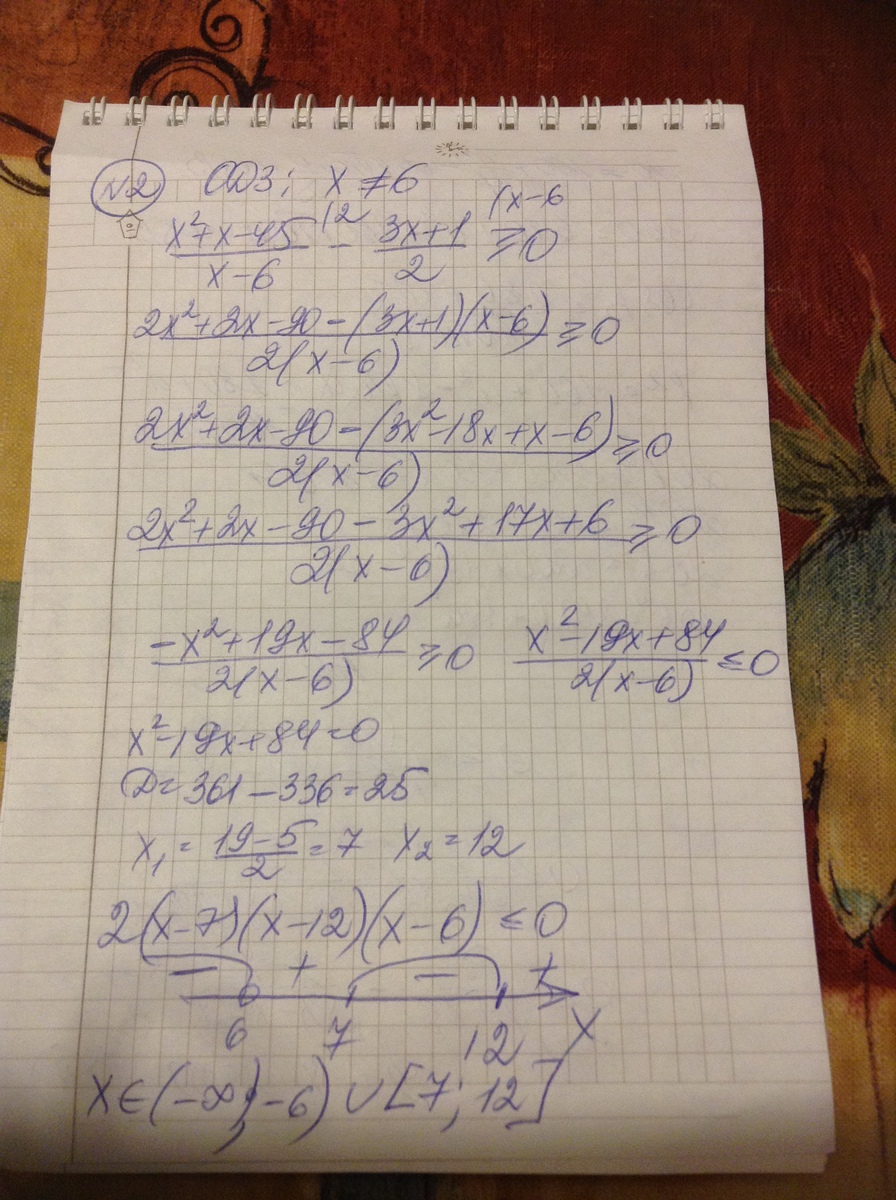 №2 ОДЗ: x ≠ 6
(x²+x-45)/(x-6) |2 - (3x+1)/2 (x-6 ≥ 0
(2x²+2x-90-(3x+1)(x-6))/(2(x-6)) ≥ 0
(2x²+2x-90-(3x²-18x+x-6))/(2(x-6)) ≥ 0
(2x²+2x-90-3x²+17x+6)/(2(x-6)) ≥ 0
(-x²+19x-84)/(2(x-6)) ≥ 0 (x²-19x+84)/(2(x-6)) ≤ 0
x²-19x+84=0
D=361-336=25
x₁=(19-5)/2=7 x₂=12
2(x-7)(x-12)(x-6) ≤ 0
- + - +
6 7 12 X
x∈(-∞;-6)∪[7;12]